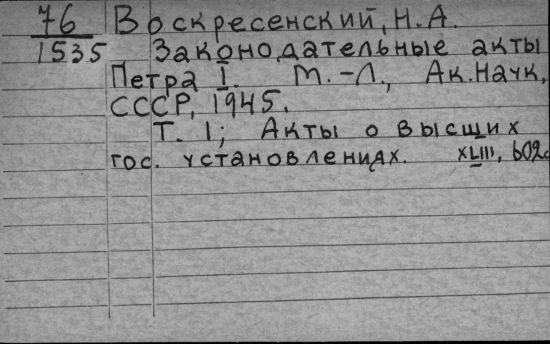 76 Воскресенский, Н.А.
1535 Законодательные акты
Петра I. М.-Л., Ак. Наук,
СССР, 1945.
Т. I; Акты о высших
гос. установлениях. XLIII, 602с